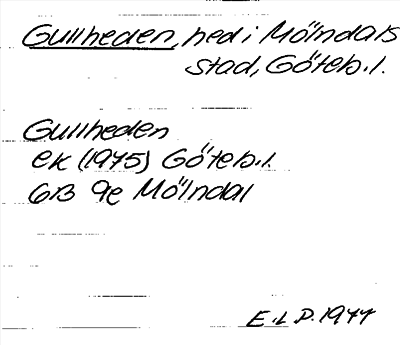 Gullheden, hed i Mölndals
stad, Göteb.l.
Gullheden
ek (1975) Göteb.l.
6B 9e Mölndal
E.L.P. 1977